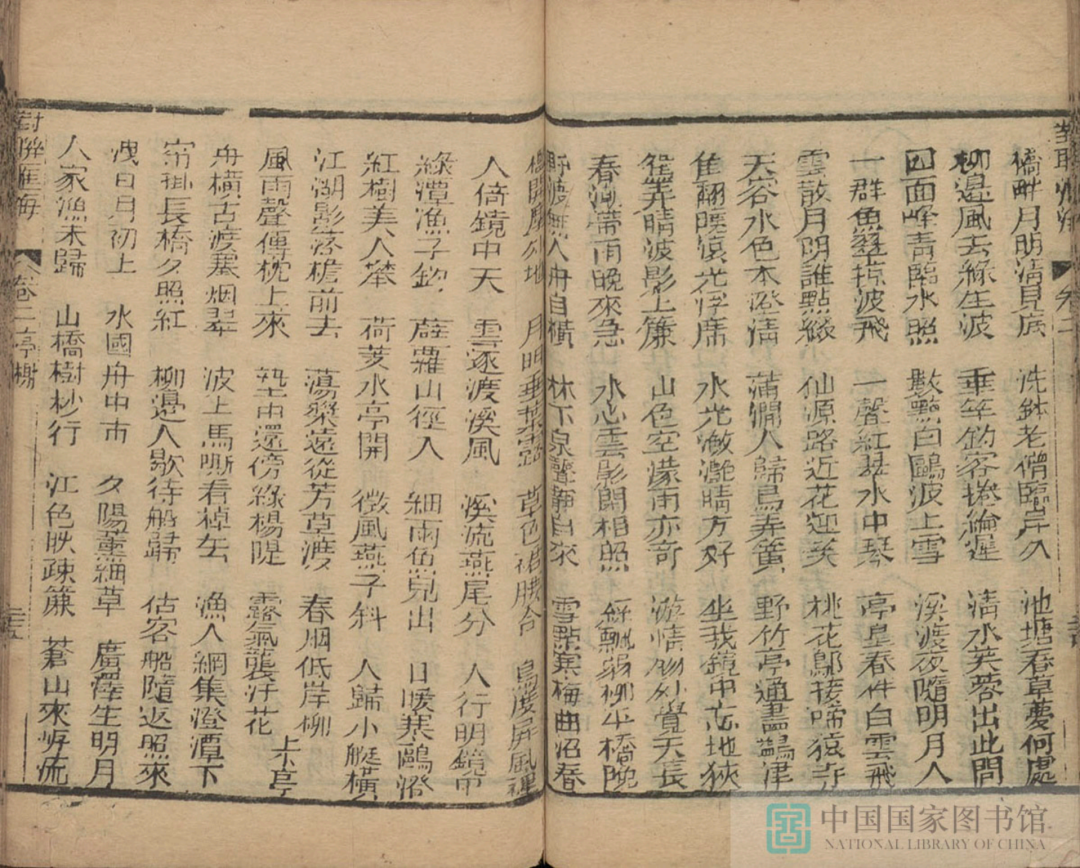 橋畔月明清見底 洗鉢老僧臨岸久 池塘春草夢何處
柳邊風去綠生波 垂竿釣客捲綸遲 清水芙蓉出此間
四面峰青臨水照 數點白鷗波上雪 溪渡夜隨明月人
一群魚躍掠波飛 一聲紅 水中琴 亭皐春伴白雲飛
雲散月明誰點綴 仙源路近花迎笑 桃花鄔接啼猿寺
天容水色本澄清 蒲澗人歸鳥弄簧 野竹亭通畫鷁津
隹翻腰滾光浮席 水光瀲灩晴方好 坐我鏡中忘地狹
鴛弄晴波影上簾 山色空濛雨亦奇 游情物外覺天長
春潮帶雨晚來急 水心雲影閒相照 絮飄弱柳平橋晚
野渡無人舟自橫 林下泉聲靜自來 雪點寒梅曲沼春
月明垂葉露 草色 合 鳥度屏風裡
人倚鏡中天 雲逐渡溪風 溪流燕尾分 人行明鏡中
綠潭漁子釣 薜蘿山徑入 細雨魚兒出 日暖寒鷗浴
紅樹美人搴 荷芰水亭開 微風燕子斜 人歸小艇橫
江湖影落檐前去 蕩槳遠從芳草渡 春烟低岸柳
風雨聲傳枕上來 墊巾還傍綠楊隄 露氣襲汀花 上卜亭
舟橫古渡寒烟翠 波上馬嘶看棹去 漁人網集澄潭下
帘掛長橋夕照紅 柳邊人歇待船歸 估客船隨返照來
洩日月初上 水國舟中市 夕陽薰細草 廣澤生明月
人家漁未歸 山橋樹杪行 江色映疎簾 蒼山來 流
對聯匯海 卷二亭榭
中国国家图书馆
NATIONAL LIBRARY OF CHINA